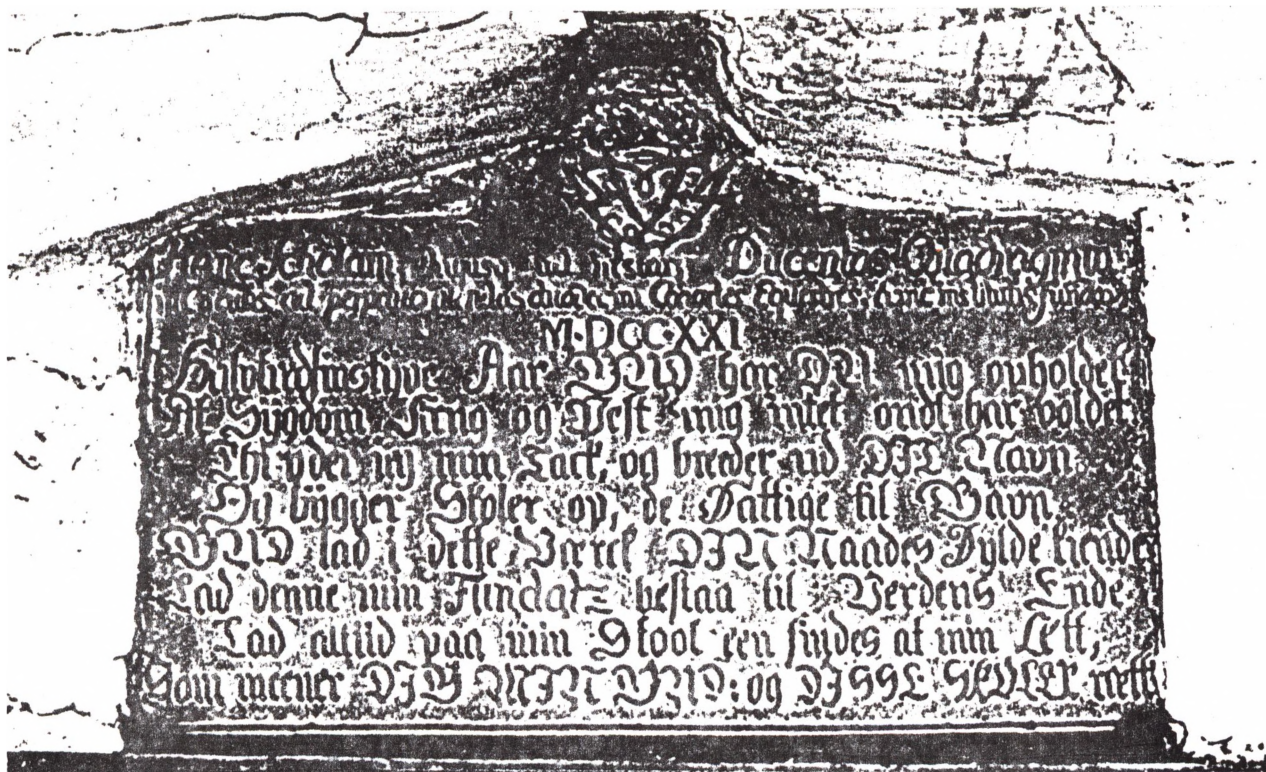 Scholam Ducentas Quadraginta
M·DCC·XXI
Halvtrediinstyve Aar GUD har DU mig opholdet
At Sÿgdom Krig og Pest mig intet ondt har voldet
Thi yder jeg min Tack, og breder ud DIT Navn
Og bÿgger Skoler op, de Fattige til Gavn
GUD lad i dette Værck DIN Naades Fylde kiende
Lad denne min Fundatz bestaa til Verdens Ende
Lad altiid paa min Skool een findes af min Ætt,
Som meener DIG MIN GUD: og DISSE SKOLER rett